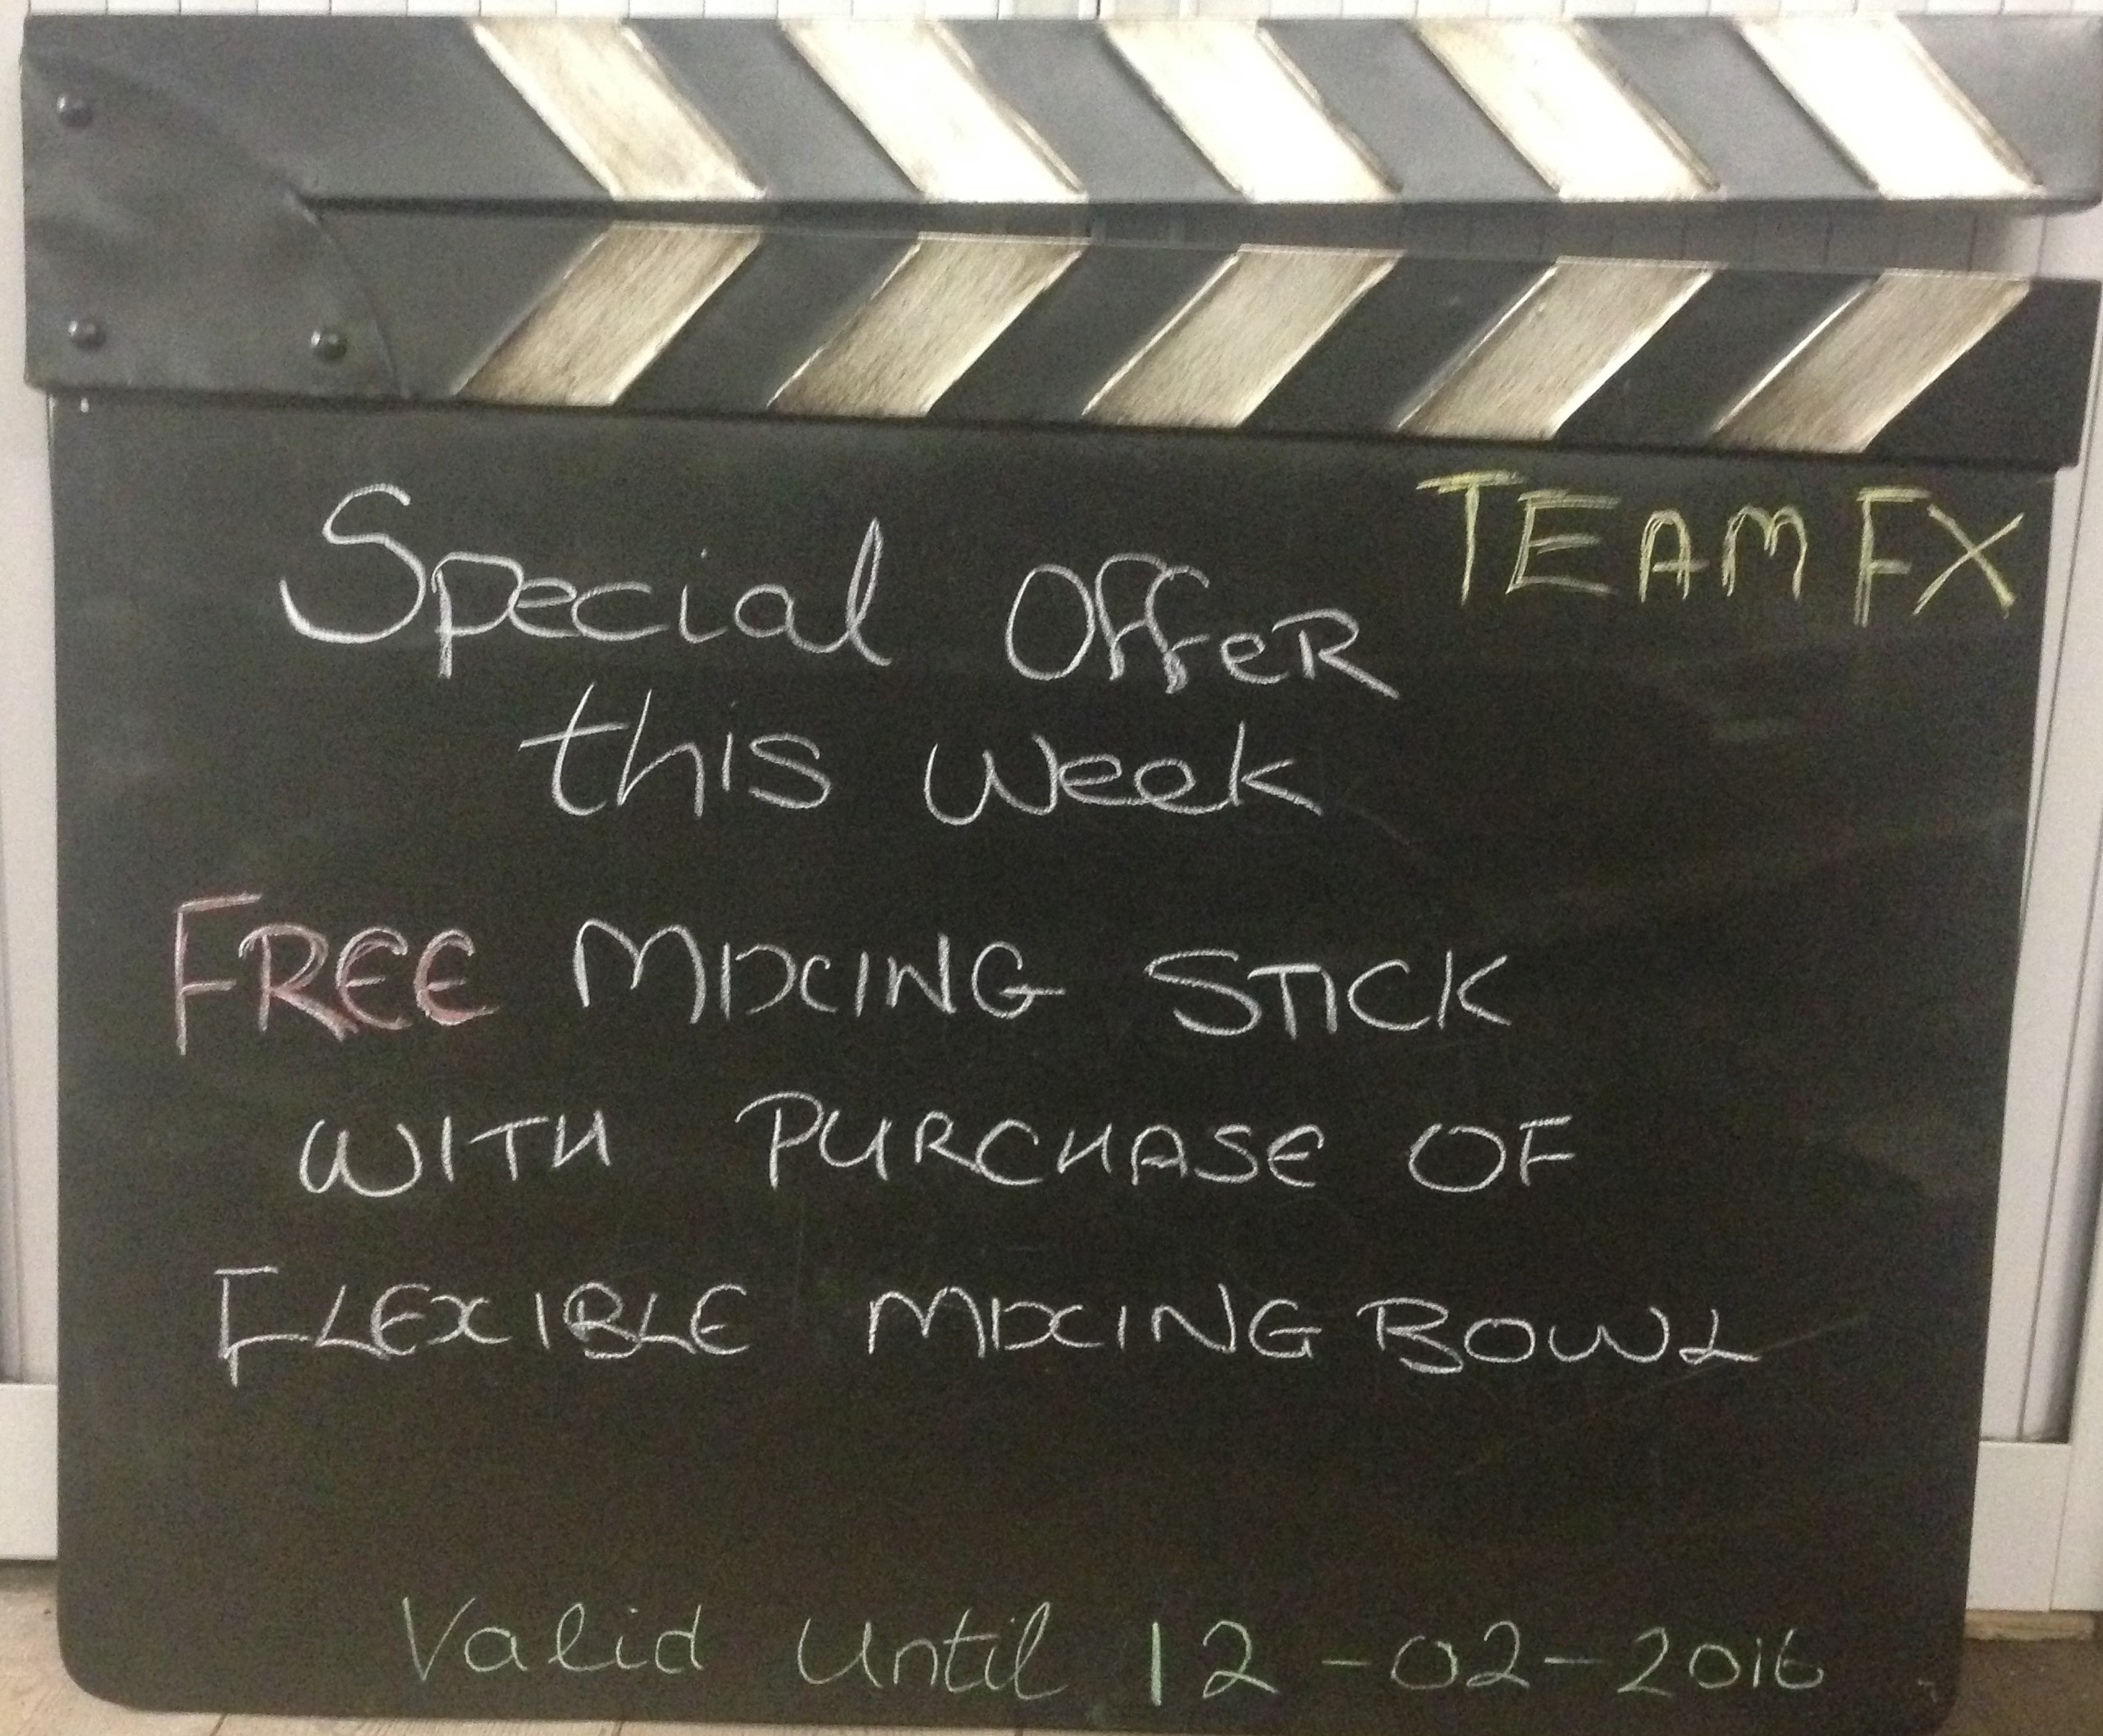 TEAM FX
Special Offer
this week
FREE MIXING STICK
WITH PURCHASE OF
FLEXIBLE MIXING BOWL
Valid Until 12-02-2016